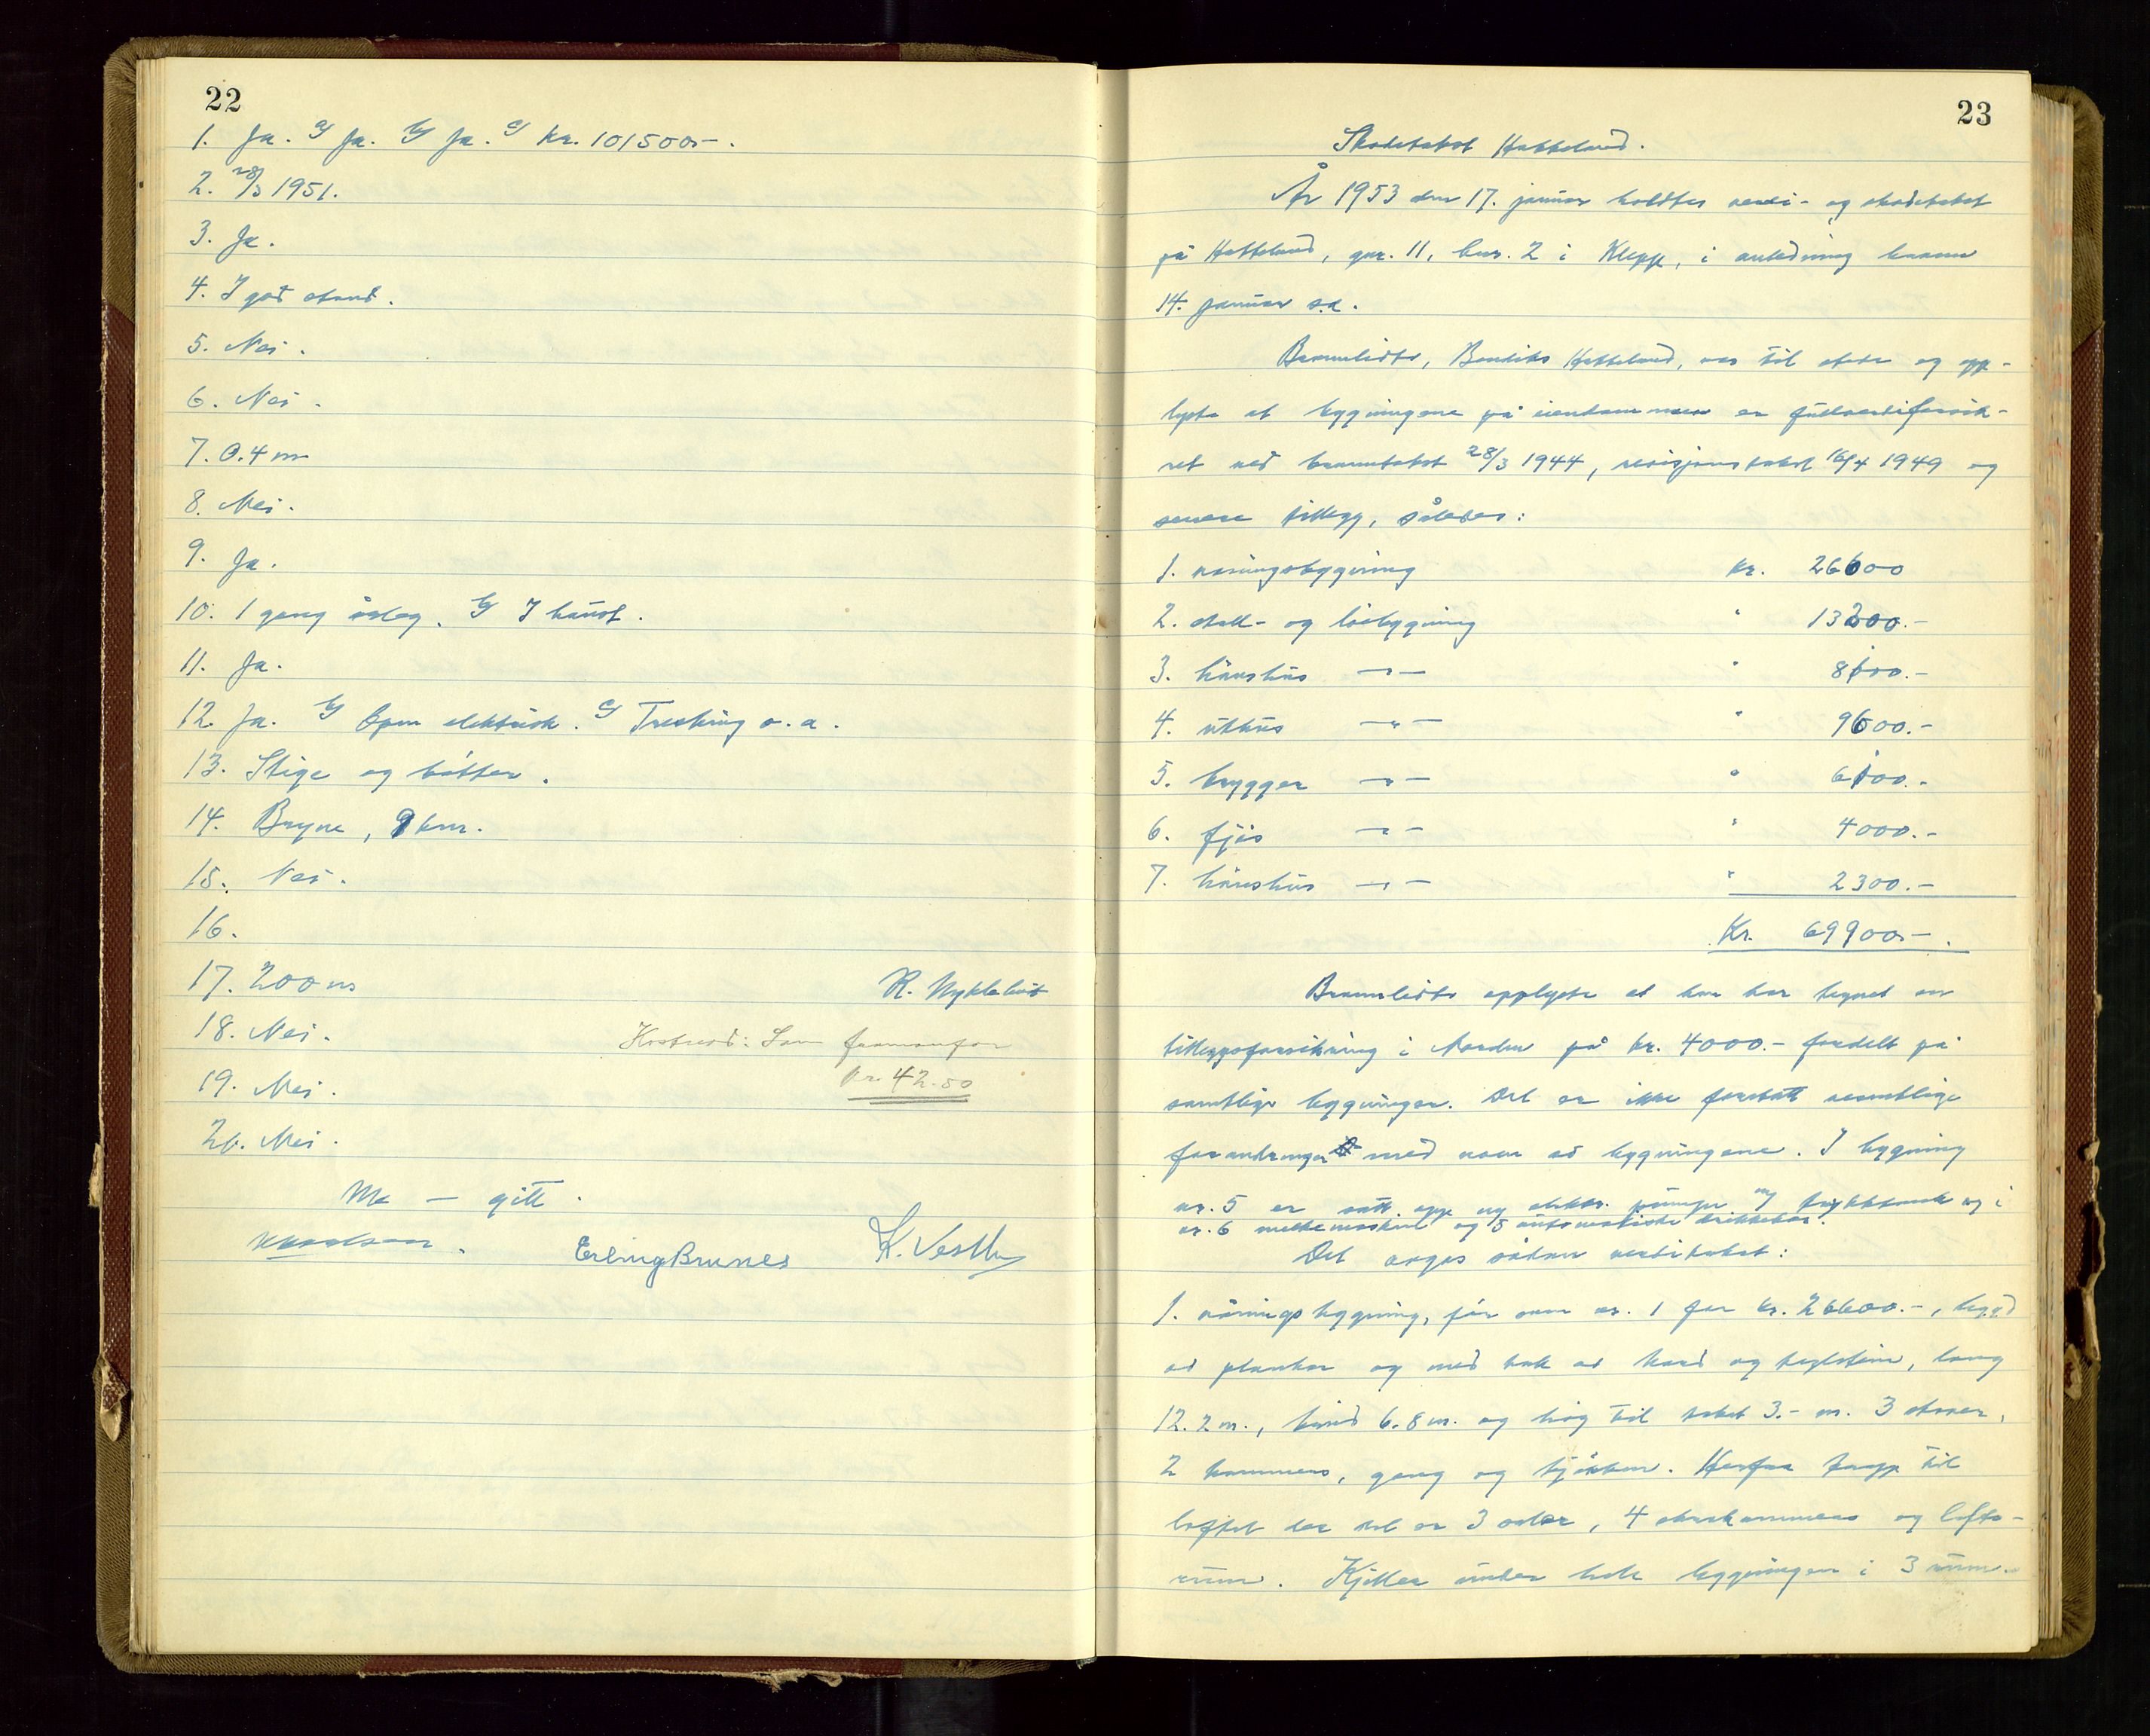 22
1. Ja. a) Ja. b) Ja. c) kr. 101500.-.
2. 28/3 1951.
3. Ja.
4. I god stand.
5. Nei.
6. Nei.
7. 0.4 m
8. Nei.
9. Ja.
10. 1 gang årleg. b) I haust.
11. Ja.
12. Ja. b) Open elektrisk. c) Tresking o.a.
13. Stige og bøtter.
14. Bryne, 9 km.
15. Nei.
16.
17. 200 m
18. Nei.
19. Nei.
20. Nei.
R. Nykleboł
Kostnad: Som framanfor
kr. 42.50
Me — gitt.
Erling Brunes K. Vestly
23
Skadetakst Hatteland.
År 1953 den 17. januar holdtes verdi- og skadetakst
på Hatteland, gnr. 11, bnr. 2 i Klepp, i anledning brann
14. januar s.å.
Brannlidte, Bendiks Hatteland, var til stede og opp-
lyste at bygningene på eiendommen er fullverdiforsik-
ret ved branntakst 28/3 1944, revisjonstakst 16/4 1949 og
senere tillegg, således:
1. våningsbygning kr. 26600
2. stall- og løebygning " 13200.-
3. hønshus —"— " 8100.-
4. uthus —"— " 9600.-
5. brygger —"— " 6100.-
6. fjøs —"— " 4000.-
7. hønshus —"— " 2300.-
Kr. 69900.-.
Brannlidte opplyste at han har tegnet en
tilleggsforsikring i Norden på kr. 4000.- fordelt på
samtlige bygninger. Det er ikke foretatt vesentlige
forandringer med noen av bygningene. I bygning
nr. 5 er satt opp ny elektr. pumpe m/ trykktank og i
nr. 6 melkemaskin og 5 automatiske drikkekar.
Det avgas sådan verditakst:
1. våningsbygning, før som nr. 1 for kr. 26600.-, bygd
av planker og med tak av bord og teglstein, lang
12.2 m., breid 6.8 m. og høg til taket 3.- m. 3 stover,
2 kammers, gang og kjøkken. Herfra trapp til
loftet der det er 3 saler, 4 kammers og lofts-
rum. Kjeller under hele bygningen i 3 rum.